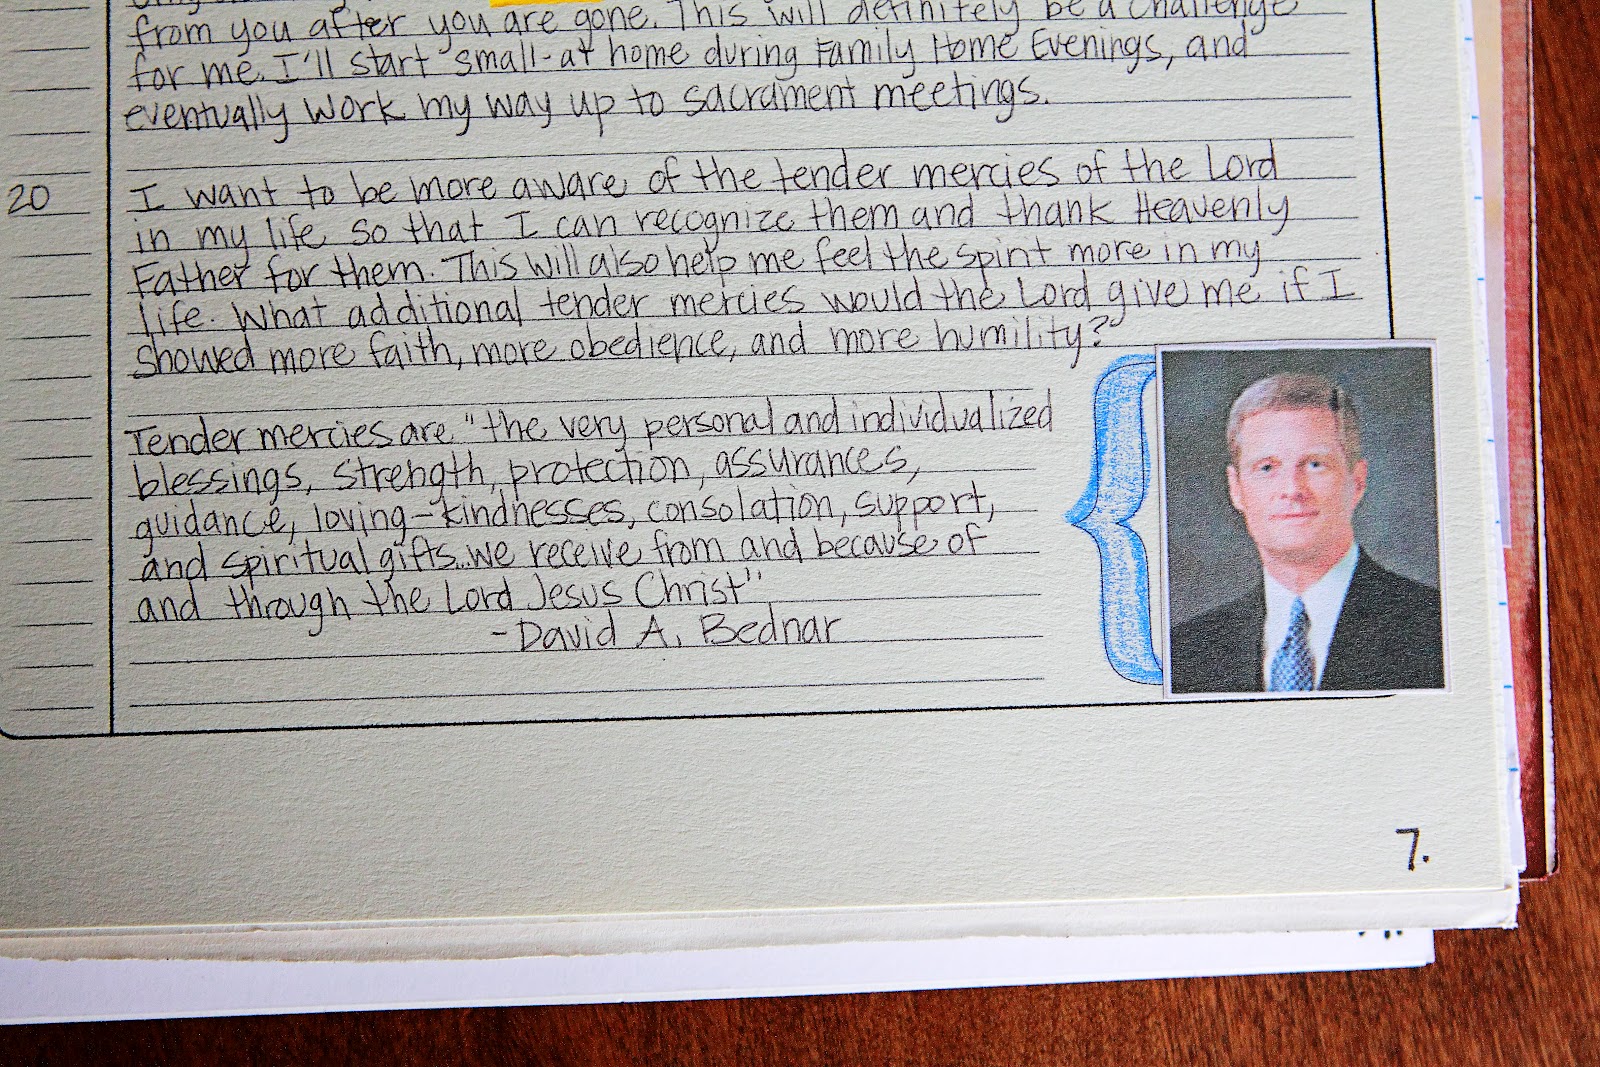 from you after you are gone. This will definitely be a challenge
for me. I'll start small-at home during Family Home Evenings, and
eventually work my way up to sacrament meetings.
20 I want to be more aware of the tender mercies of the Lord
in my life so that I can recognize them and thank Heavenly
Father for them. This will also help me feel the spirit more in my
life. What additional tender mercies would the Lord give me if I
showed more faith, more obedience, and more humility?
Tender mercies are "the very personal and individualized
blessings, strength, protection, assurances,
guidance, loving-kindnesses, consolation, support,
and spiritual gifts...we receive from and because of
and through the Lord Jesus Christ"
-David A. Bednar
7.